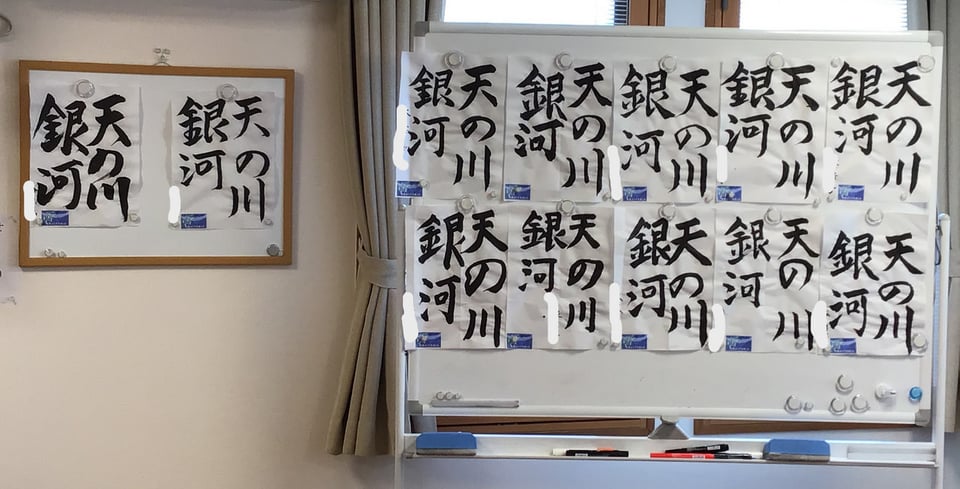 天の川
銀河
天の川
銀河
天の川
銀河
天の川
銀河
天の川
銀河
天の川
銀河
天の川
銀河
天の川
銀河
天の川
銀河
天の川
銀河
天の川
銀河
天の川
銀河